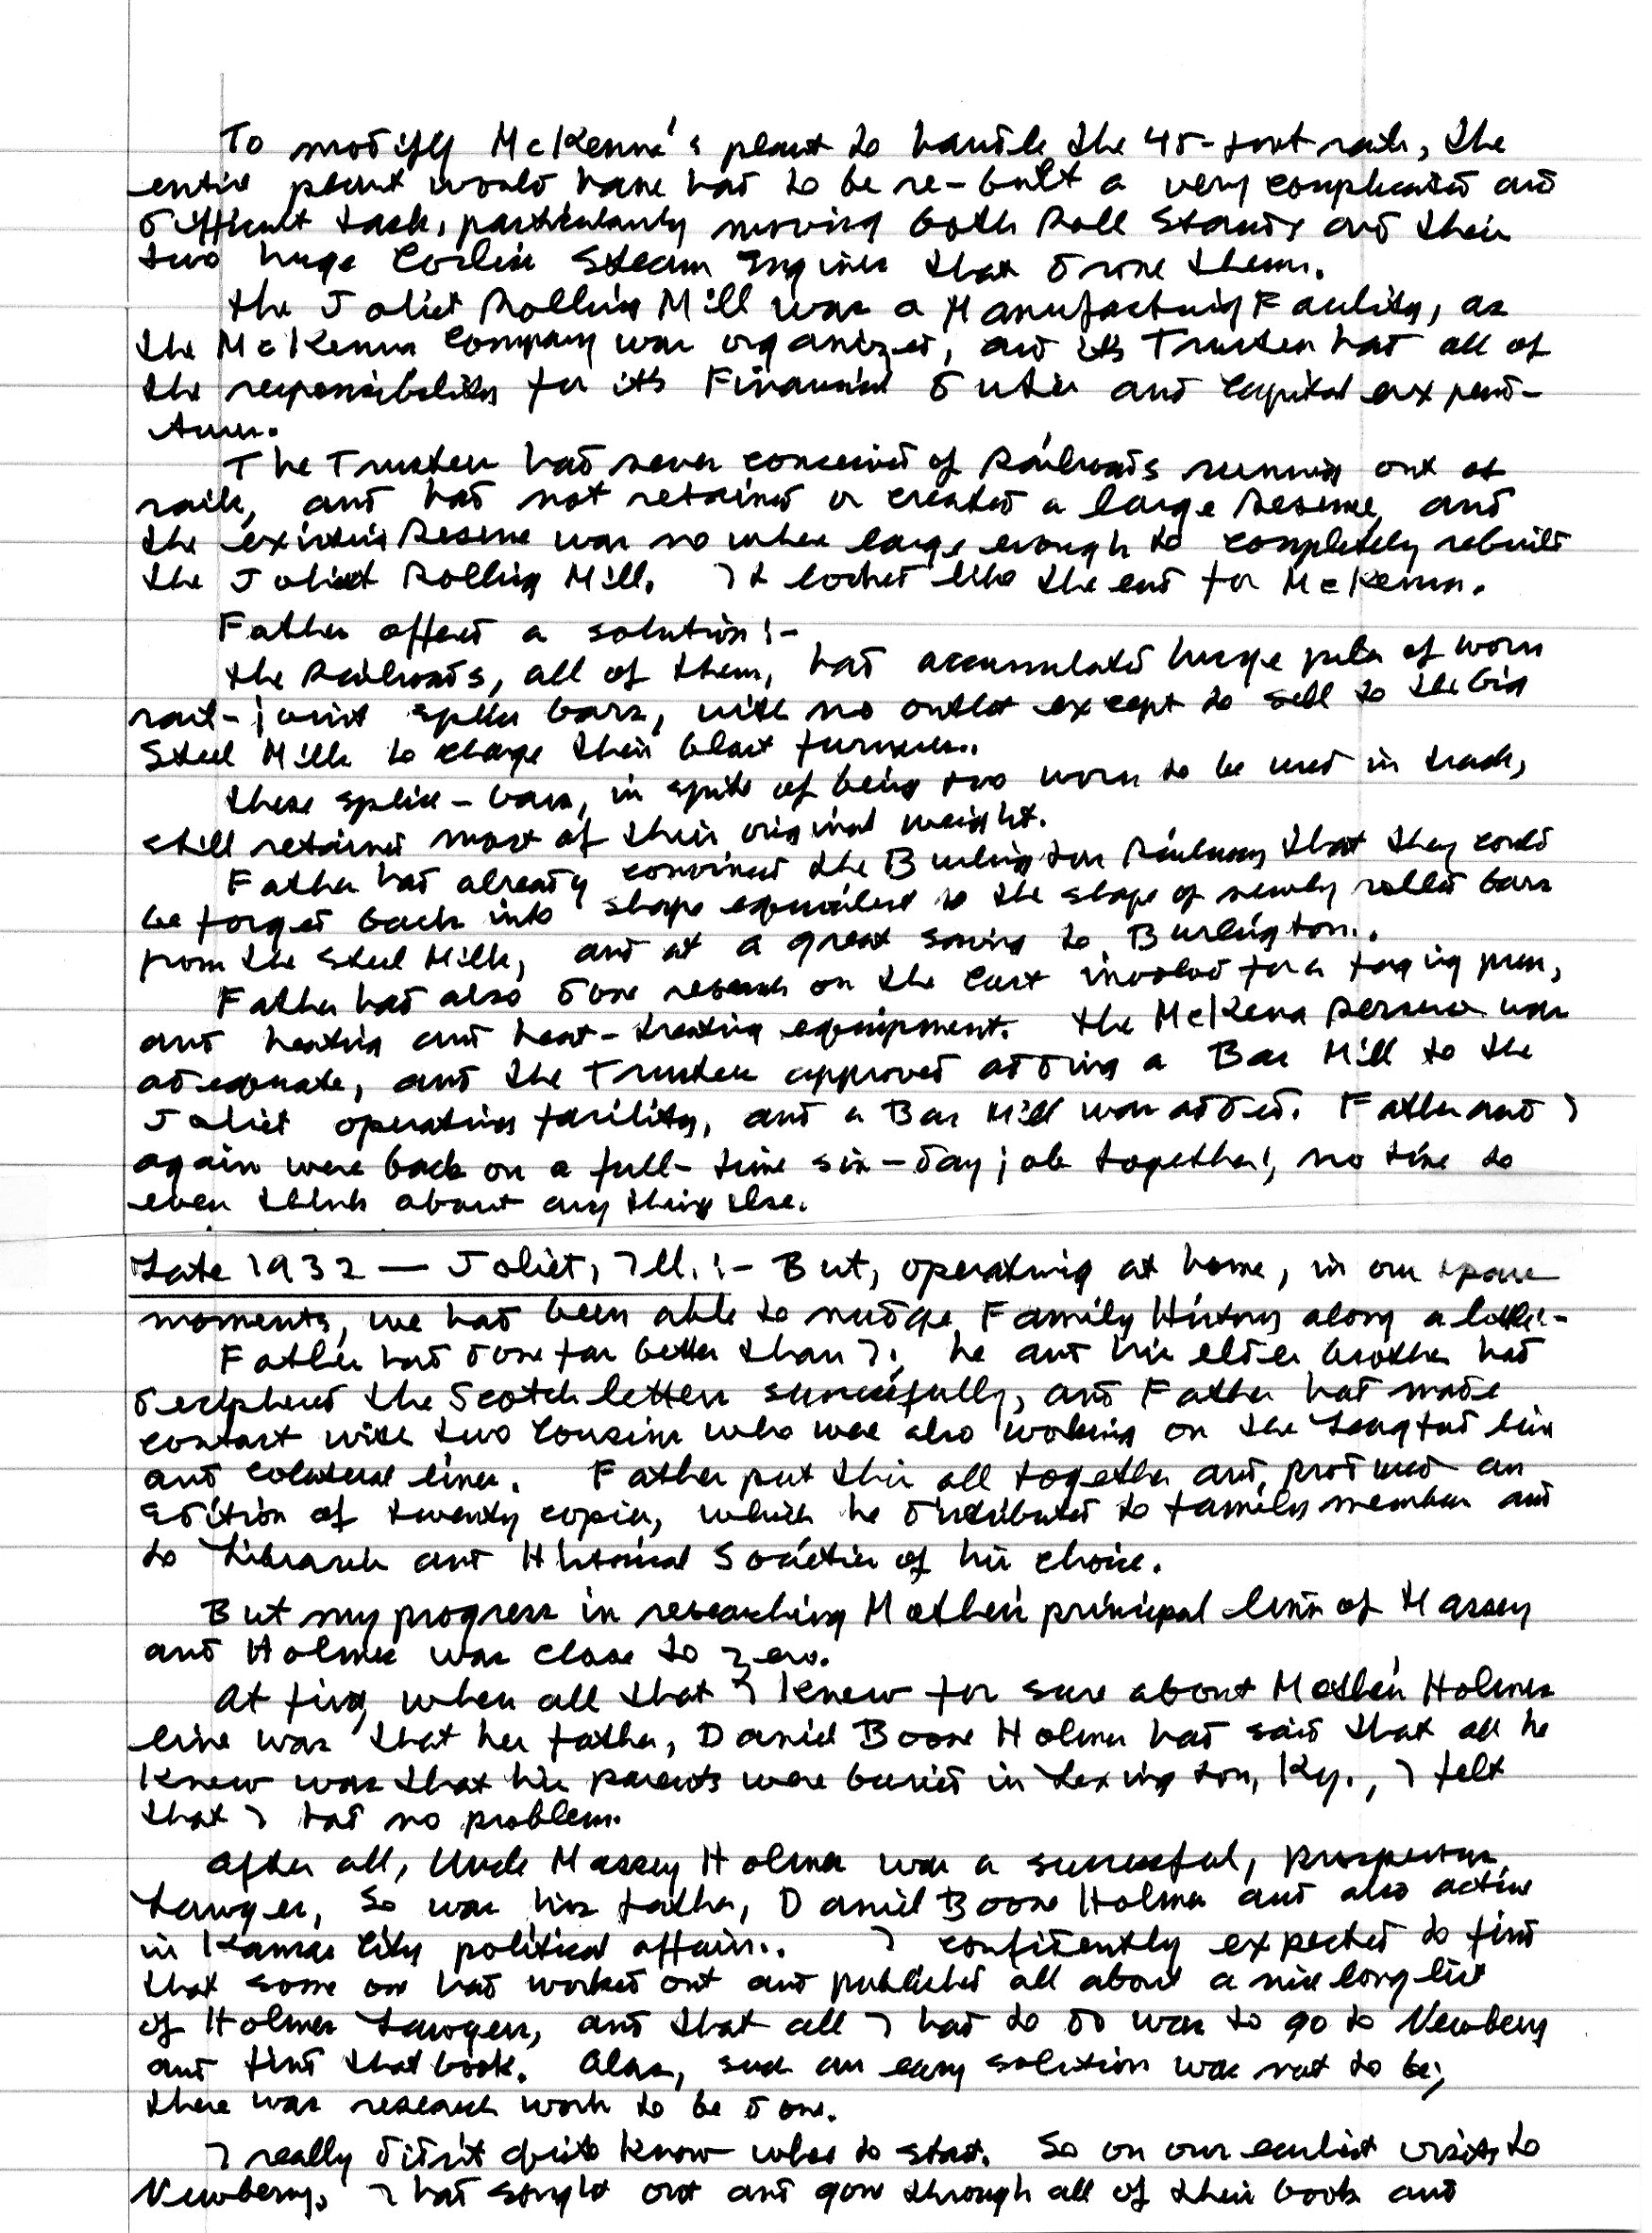 To modify McKenna's plant to handle the 45-foot rails, the
entire plant would have had to be re-built a very complicated and
difficult task, particularly moving both Roll Stands and their
two huge Corliss Steam Engines that drove them.
The Joliet Rolling Mill was a Manufacturing Facility, as
the McKenna Company was organized, and its Trustees had all of
the responsibilities for its Financial duties and capital expend-
itures.
The Trustees had never conceived of Railroads running out of
rails, and had not retained or created a large Reserve, and
the existing Reserve was no where large enough to completely rebuild
the Joliet Rolling Mill. I t looked like the end for McKenna.
Father offered a solution:-
The Railroads, all of them, had accumulated huge piles of worn
rail-joint splice bars, with no outlet except to sell to the big
Steel Mills to charge their blast furnaces.
These splice-bars, in spite of being too worn to be used in track,
still retained most of their original weight.
Father had already convinced the Burlington Railway that they could
be forged back into shape equivalent to the shape of newly rolled bars
from the Steel Mills, and at a great saving to Burlington.
Father had also done research on the cost involved for a forging press,
and heating and heat-treating equipment. The McKenna Reserve was
adequate, and the Trustees approved adding a Bar Mill to the
Joliet operating facility, and a Bar Mill was added. Father and I
again were back on a full-time six-day job together!, no time to
even think about any thing else.
Late 1932 — Joliet, Ill.:- But, operating at home, in our spare
moments, we had been able to nudge Family History along a little.-
Father had done far better than I; he and his elder brother had
deciphered the Scotch letters successfully, and Father had made
contact with two Cousins who were also working on the Langford line
and colateral lines. Father put this all together and, produced an
edition of twenty copies, which he distributed to family members and
to Libraries and Historical Societies of his choice.
But my progress in researching Mother's principal lines of Massey
and Holmes was close to zero.
At first, when all that I knew for sure about Mother's Holmes
line was that her father, Daniel Boone Holmes had said that all he
knew was that his parents were buried in Lexington, Ky., I felt
that I had no problem.
After all, Uncle Massey Holmes was a successful, prosperous,
Lawyer, So was his father, Daniel Boone Holmes and also active
in Kansas City political affairs.. I confidently expected to find
that some one had worked out and published all about a nice long list
of Holmes Lawyers, and that all I had to do was to go to Newberry
and find that book. Alas, such an easy solution was not to be;
there was research work to be done.
I really didn't quite know where to start. So on our earliest visits to
Newberry, I had sought out and gone through all of their books and